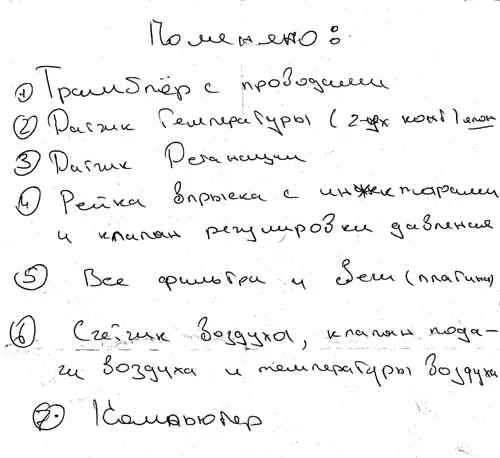 Поменяно:
1 Трамблёр с проводами
2 Датчик Температуры (2-ух конт)
3 Датчик Детанации
4 Рейка впрыска с инжекторами
и клапан регулировки давления
5 Все фильтра и Свеч (платина)
6 Счётчик Воздуха, клапан пода-
чи воздуха и температуры воздуха
7. Компьютер